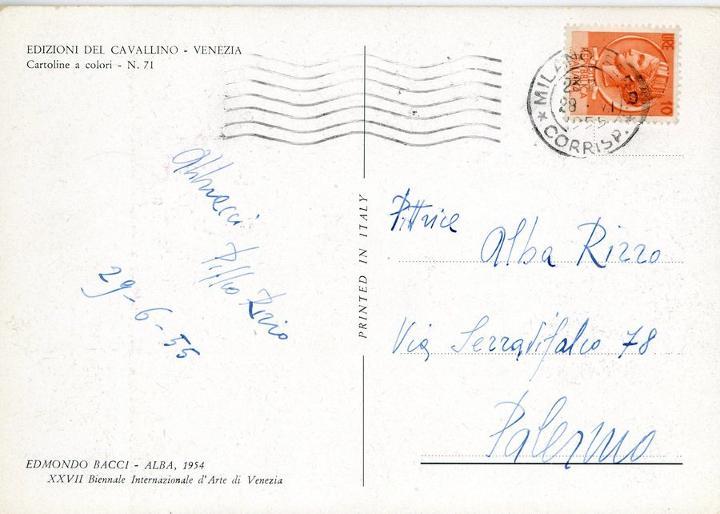 EDIZIONI DEL CAVALLINO - VENEZIA
Cartoline a colori - N. 71
MILANO
CORRISP.
LIRE 10
Abbracci
Pippo Rizzo
29-6-55
PRINTED IN ITALY
Pittrice
Alba Rizzo
Via Serradifalco 78
Palermo
EDMONDO BACCI - ALBA, 1954
XXVII Biennale Internazionale d'Arte di Venezia